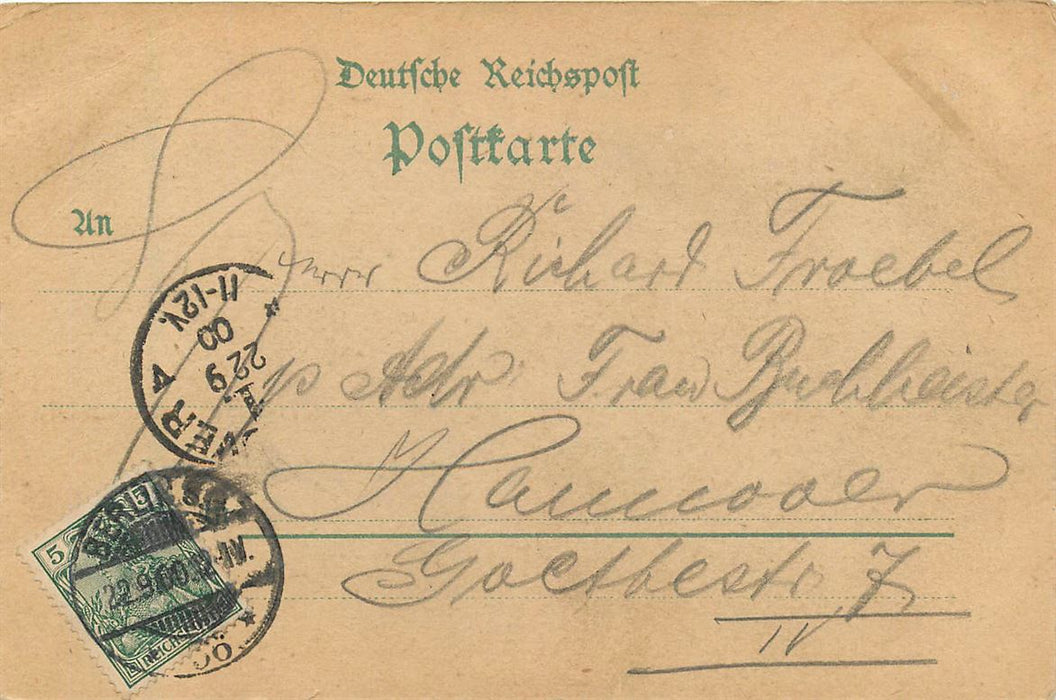 Deutsche Reichspost
Postkarte
An
Herrn Richard Froebel
p Adr Frau Buchheister
Hannover
Goethestr. 7
IV
VER A
22 9
00
11-12V.
BERLIN
22.9.00.
5
5
REICH